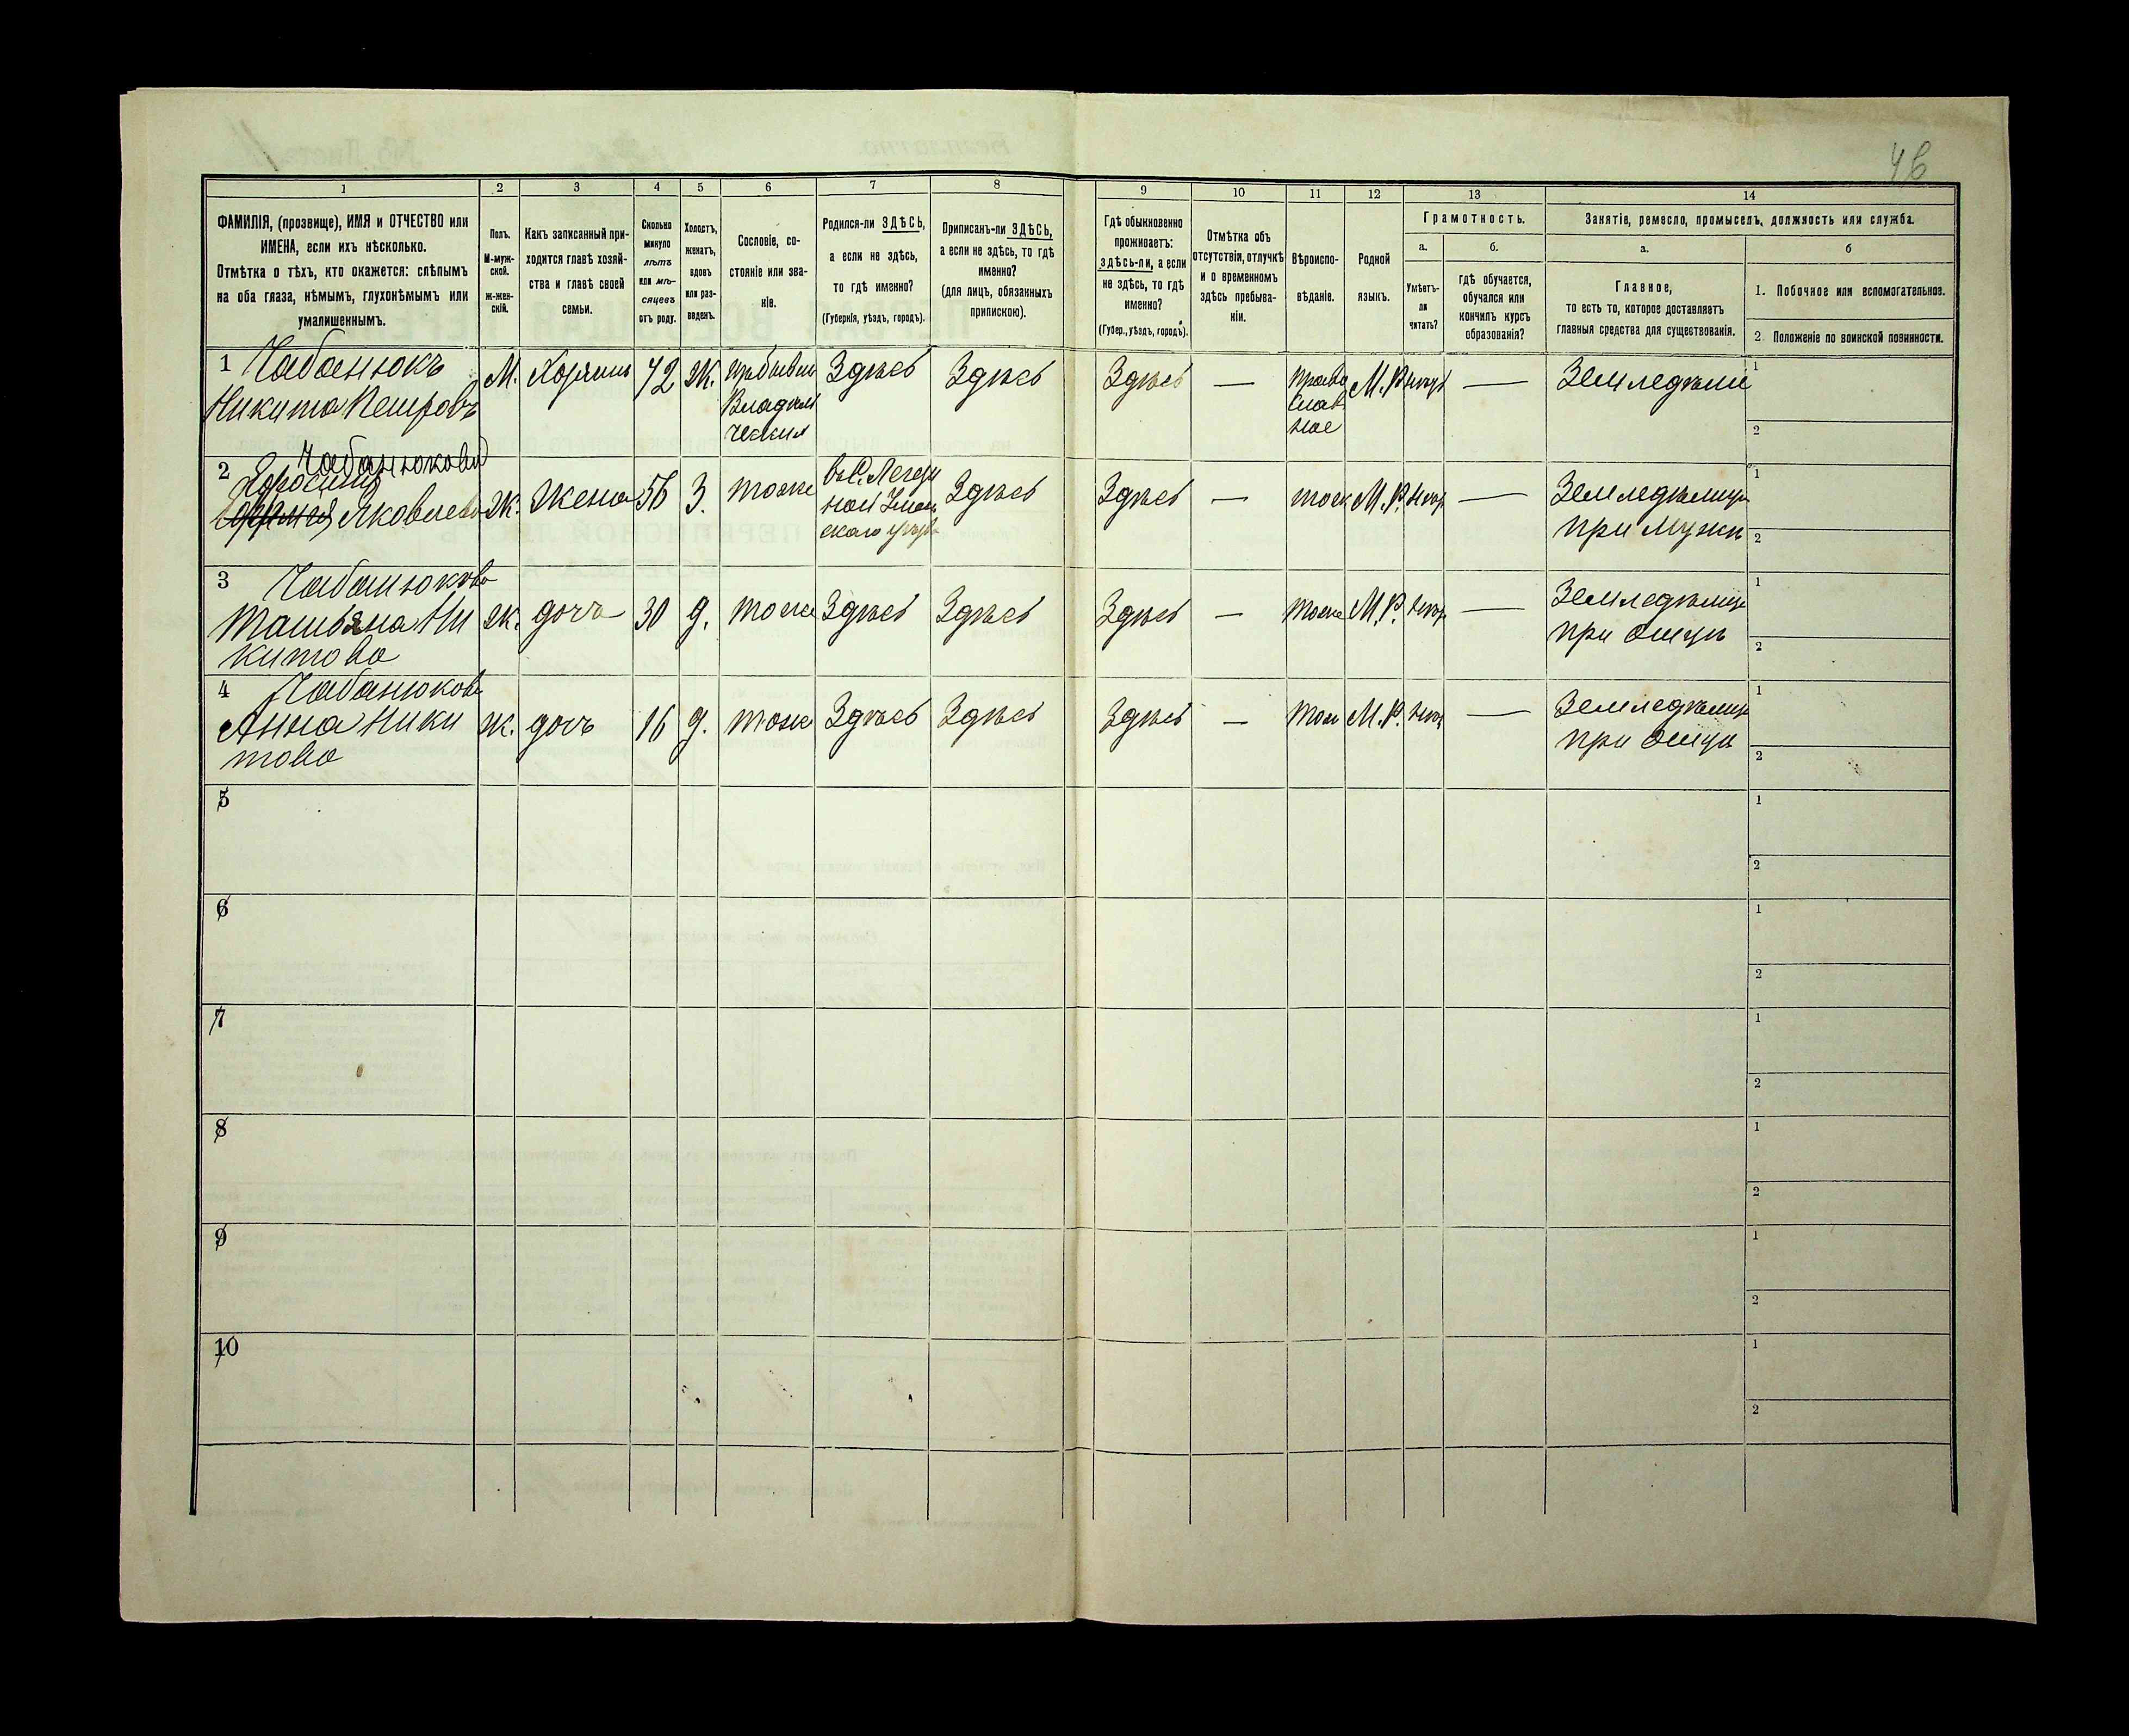 46
1 2 3 4 5 6 7 8 9 10 11 12 13 14
ФАМИЛІЯ, (прозвище), ИМЯ и ОТЧЕСТВО или
ИМЕНА, если ихъ нѣсколько.
Отмѣтка о тѣхъ, кто окажется: слѣпымъ
на оба глаза, нѣмымъ, глухонѣмымъ или
умалишеннымъ.
Полъ.
М-муж-
ской.
ж-жен-
скій.
Какъ записанный при-
ходится главѣ хозяй-
ства и главѣ своей
семьи.
Сколько
минуло
лѣтъ
или мѣ-
сяцевъ
отъ роду.
Холостъ,
женатъ,
вдовъ
или раз-
веденъ.
Сословіе, со-
стояніе или зва-
ніе.
Родился-ли ЗДѢСЬ,
а если не здѣсь,
то гдѣ именно?
(Губернія, уѣздъ, городъ).
Приписанъ-ли ЗДѢСЬ,
а если не здѣсь, то гдѣ
именно?
(для лицъ, обязанныхъ
припискою).
Гдѣ обыкновенно
проживаетъ:
здѣсь-ли, а если
не здѣсь, то гдѣ
именно?
(Губер., уѣздъ, городъ).
Отмѣтка объ
отсутствіи, отлучкѣ
и о временномъ
здѣсь пребыва-
ніи.
Вѣроиспо-
вѣданіе.
Родной
языкъ.
Грамотность.
а.
Умѣетъ-
ли
читать?
б.
гдѣ обучается,
обучался или
кончилъ курсъ
образованія?
Занятіе, ремесло, промыселъ, должность или служба.
а.
Главное,
то есть то, которое доставляетъ
главныя средства для существованія.
б
1. Побочное или вспомогательное.
2. Положеніе по воинской повинности.
1 Чабанюкъ
Никита Петровъ
М.
Хозяинъ
72
Ж.
Здѣсь
Здѣсь
Здѣсь
—
Право
слав
ное
М.Р.
—
1
2
2 Чабанюкова
Яковлева
Ж.
Жена
56
З.
тоже
Здѣсь
Здѣсь
—
М.Р.
—
при мужѣ
1
2
3 Чабанюкова
Татьяна Ни
китова
Ж.
дочь
30
д.
тоже
Здѣсь
Здѣсь
Здѣсь
—
тоже
М.Р.
—
при отцѣ
1
2
4 Чабанюкова
Анна Ники
това
Ж.
дочь
16
д.
тоже
Здѣсь
Здѣсь
Здѣсь
—
М.Р.
—
при отцѣ
1
2
5
1
2
6
1
2
7
1
2
8
1
2
9
1
2
10
1
2